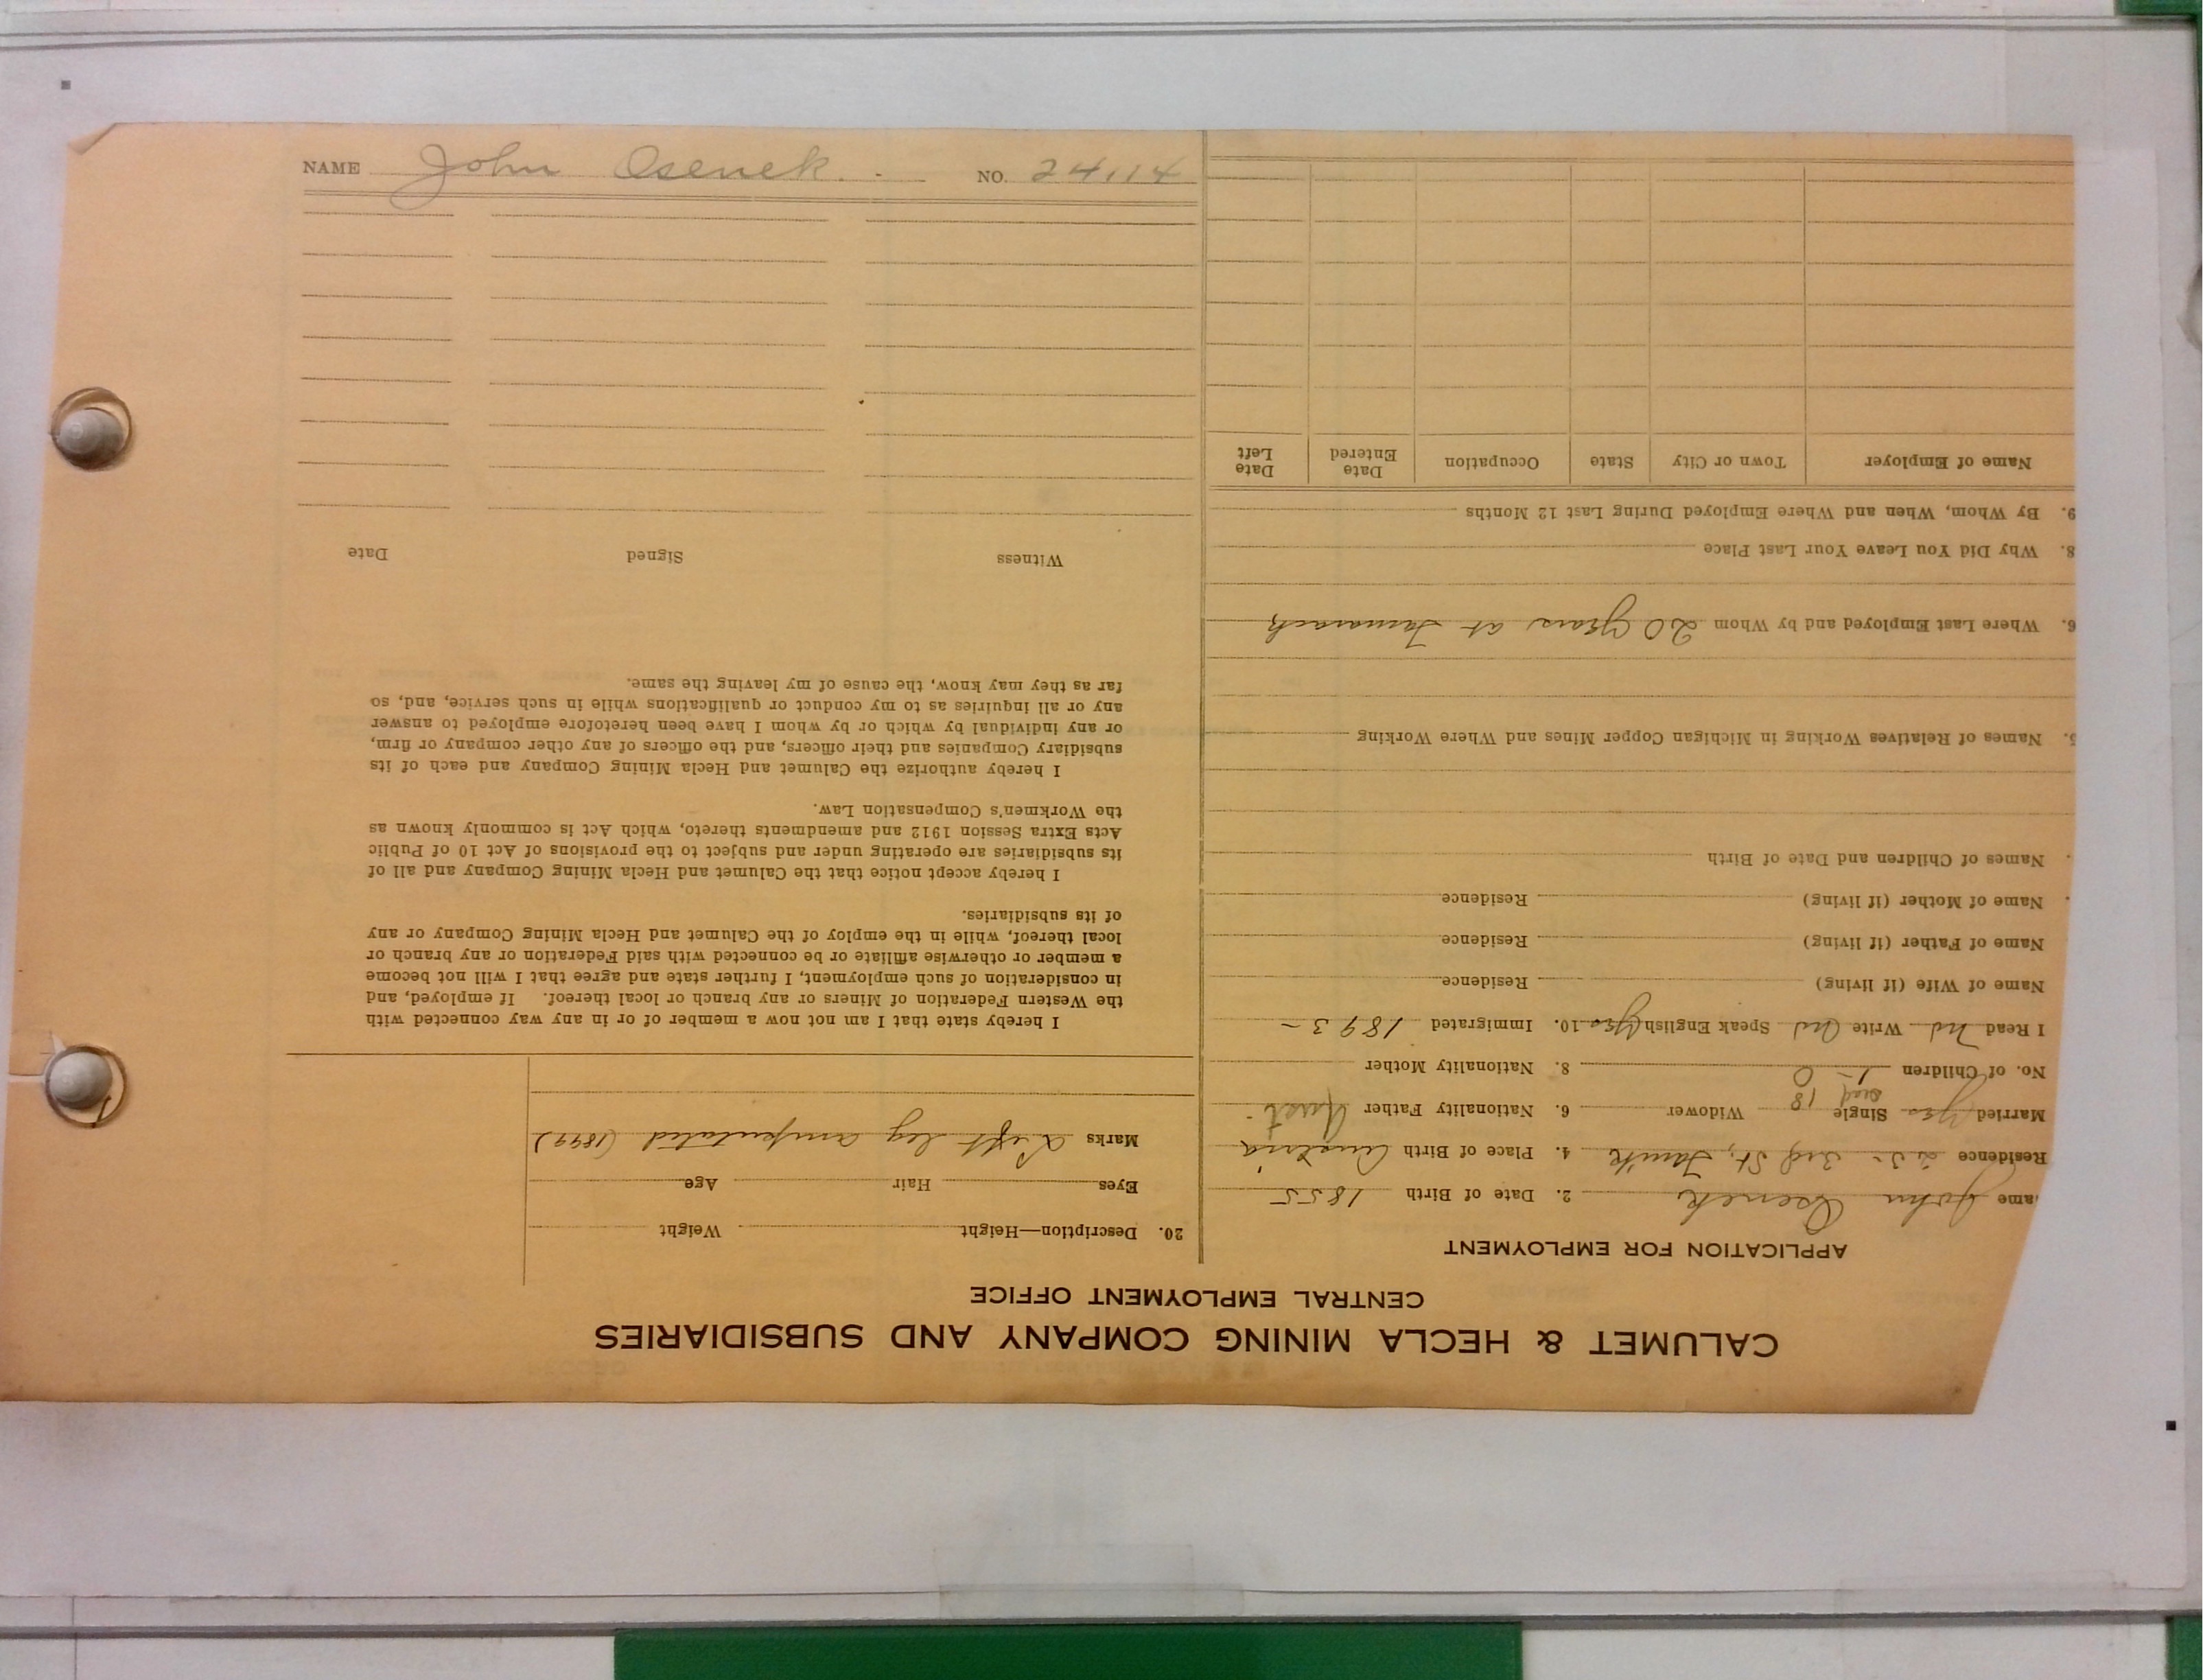 NAME John Osenek. NO. 24,114
CALUMET & HECLA MINING COMPANY AND SUBSIDIARIES
CENTRAL EMPLOYMENT OFFICE
APPLICATION FOR EMPLOYMENT
ame John Osenek 2. Date of Birth 1855
Residence 25- 3rd St, Tam'k 4. Place of Birth Austria
Married Yes Single Widower 6. Nationality Father Aust-
dead 18
No. of Children 1- 0 8. Nationality Mother
I Read no Write no Speak English Yes 10. Immigrated 1893-
Name of Wife (if living) Residence
Name of Father (if living) Residence
. Name of Mother (if living) Residence
. Names of Children and Date of Birth
5. Names of Relatives Working in Michigan Copper Mines and Where Working
6. Where Last Employed and by Whom 20 years at Tamarack
8. Why Did You Leave Your Last Place
9. By Whom, When and Where Employed During Last 12 Months
Name of Employer Town or City State Occupation Date Entered Date Left
20. Description—Height Weight
Eyes Hair Age
Marks Left leg amputated (1899)
I hereby state that I am not now a member of or in any way connected with
the Western Federation of Miners or any branch or local thereof. If employed, and
in consideration of such employment, I further state and agree that I will not become
a member or otherwise affiliate or be connected with said Federation or any branch or
local thereof, while in the employ of the Calumet and Hecla Mining Company or any
of its subsidiaries.
I hereby accept notice that the Calumet and Hecla Mining Company and all of
its subsidiaries are operating under and subject to the provisions of Act 10 of Public
Acts Extra Session 1912 and amendments thereto, which Act is commonly known as
the Workmen's Compensation Law.
I hereby authorize the Calumet and Hecla Mining Company and each of its
subsidiary Companies and their officers, and the officers of any other company or firm,
or any individual by which or by whom I have been heretofore employed to answer
any or all inquiries as to my conduct or qualifications while in such service, and, so
far as they may know, the cause of my leaving the same.
Witness Signed Date